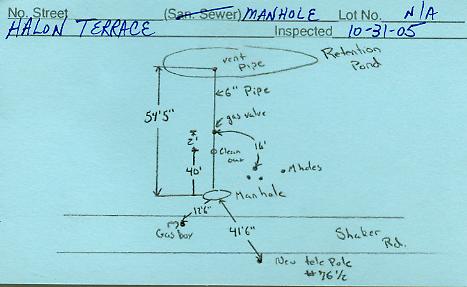 No. Street (San. Sewer) MANHOLE Lot No. N/A
HALON TERRACE Inspected 10-31-05
vent Pipe
Retention Pond
6" Pipe
gas valve
54'5"
2'
Clean out
16'
40'
Mholes
Manhole
12'6"
Gas box
41'6"
Shaker Rd.
New tele Pole
#76 1/2